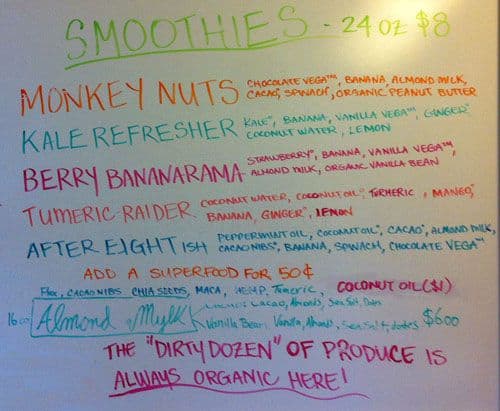 SMOOTHIES - 24 OZ $8
MONKEY NUTS CHOCOLATE VEGA™, BANANA, ALMOND MILK,
CACAO, SPINACH, ORGANIC PEANUT BUTTER
KALE REFRESHER KALE*, BANANA, VANILLA VEGA™, GINGER*
COCONUT WATER, LEMON
BERRY BANANARAMA STRAWBERRY*, BANANA, VANILLA VEGA™,
ALMOND MILK, ORGANIC VANILLA BEAN
TUMERIC-RAIDER COCONUT WATER, COCONUT OIL*, TURMERIC, MANGO*
BANANA, GINGER*, LEMON
AFTER EIGHT ISH PEPPERMINT OIL, COCONUT OIL*, CACAO*, ALMOND MILK,
CACAO NIBS*, BANANA, SPINACH, CHOCOLATE VEGA™
ADD A SUPERFOOD FOR 50¢
Flax, CACAO NIBS, CHIA SEEDS, MACA, HEMP, Tumeric, COCONUT OIL ($1)
16oz Almond Mylk Cacao, Almonds, Sea Salt, Dates
Vanilla Bean, Vanilla, Almonds, Sea Salt, dates $6.00
THE "DIRTY DOZEN" OF PRODUCE IS
ALWAYS ORGANIC HERE!